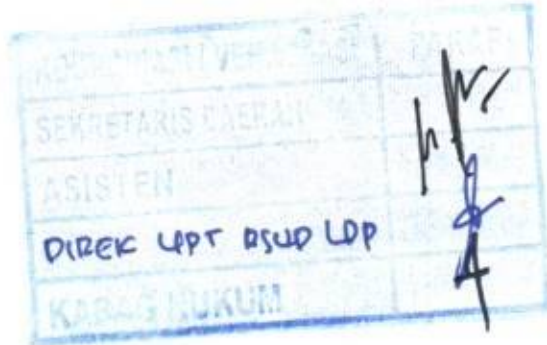 PARAF
SEKRETARIS DAERAH
ASISTEN
DIREK UPT RSUD LDP
KABAG HUKUM